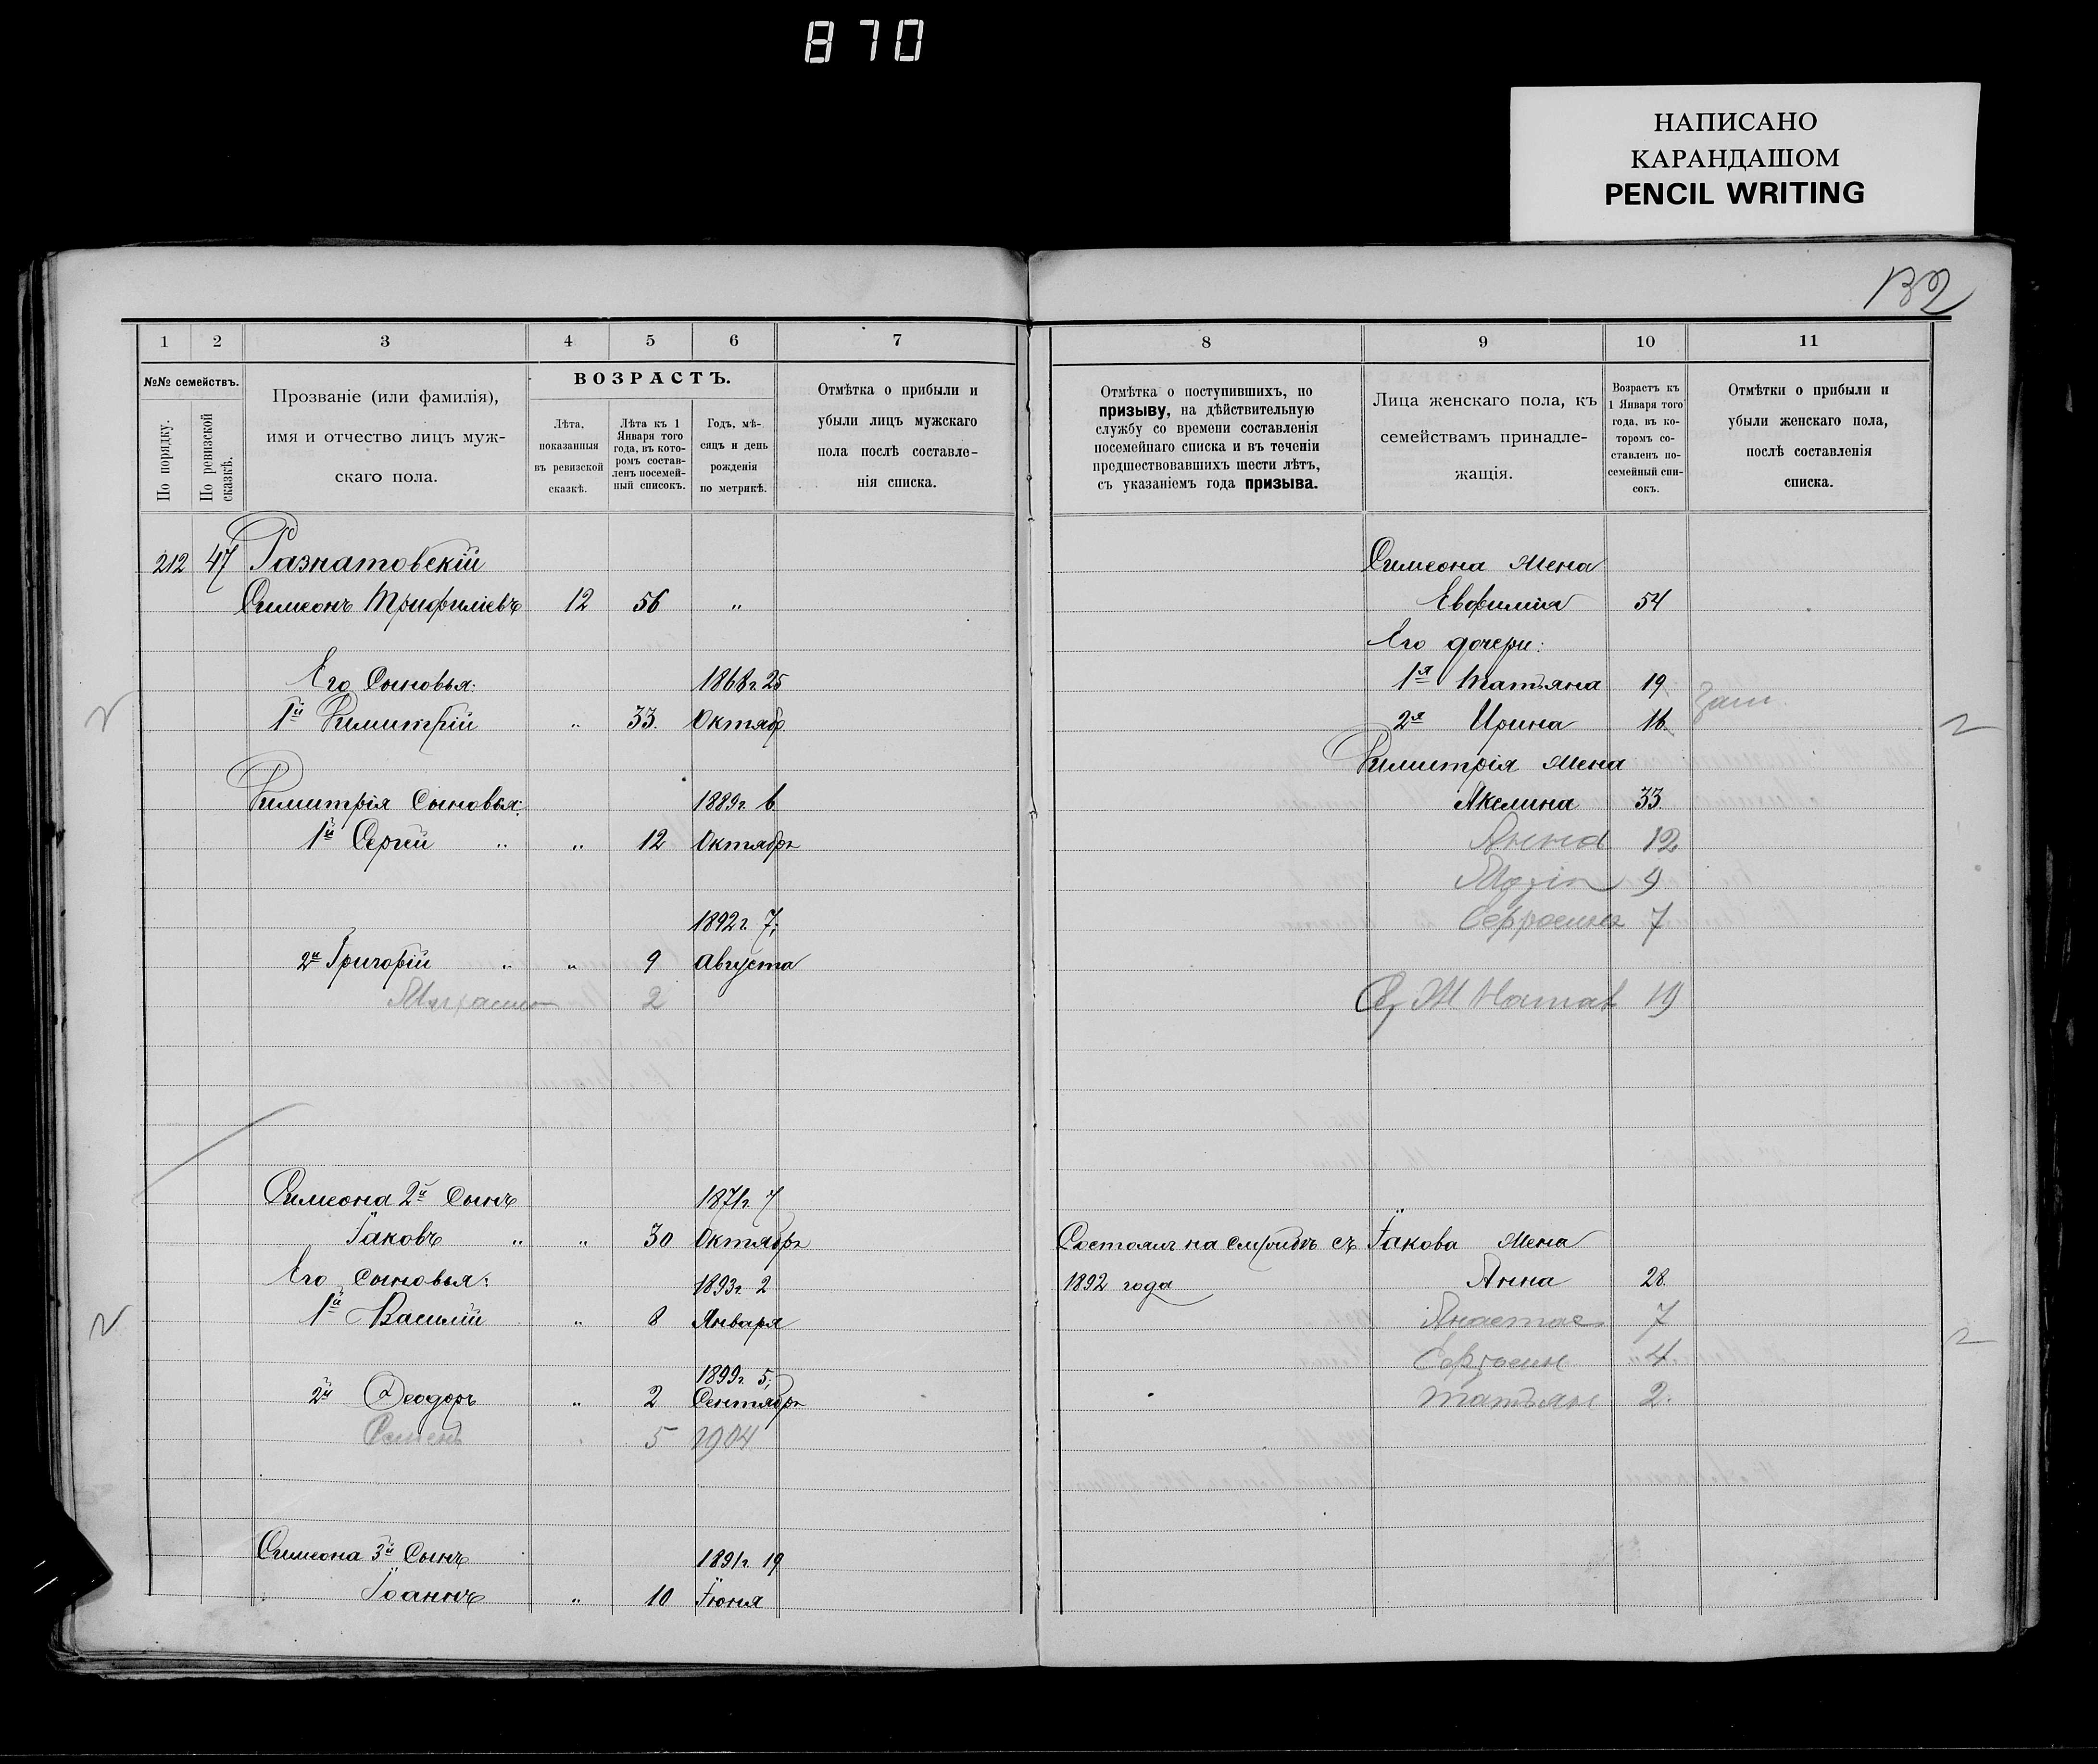 870
НАПИСАНО
КАРАНДАШОМ
PENCIL WRITING
132
1 2 3 4 5 6 7
№№ семействъ.
По порядку.
По ревизской сказкѣ.
Прозваніе (или фамилія),
имя и отчество лицъ муж-
скаго пола.
ВОЗРАСТЪ.
Лѣта,
показанныя
въ ревизской
сказкѣ.
Лѣта къ 1
Января того
года, въ кото-
ромъ состав-
ленъ посемей-
ный списокъ.
Годъ, мѣ-
сяцъ и день
рожденія
по метрикѣ.
Отмѣтка о прибыли и
убыли лицъ мужскаго
пола послѣ составле-
нія списка.
212 47 Разнатовскій
Симеонъ Трифиліевъ 12 56 "
Его Сыновья: 1868 г. 25
1й Димитрій " 33. Октяб.
Димитрія Сыновья: 1889 г. 6
1й Сергій " " 12 Октябр
1892 г. 7,
2й Григорій " " 9 Августа
2
Симеона 2й Сынъ 1871 г. 7
Іаковъ " " 30 Октябр
Его Сыновья: 1893 г. 2
1й Василій " 8 Января
1899 г. 5,
2й Ѳеодоръ " 2 Сентябр
Семенъ 5 1904
Симеона 3й Сынъ 1891 г. 19
Іоаннъ " 10 Іюня
8 9 10 11
Отмѣтка о поступившихъ, по
призыву, на дѣйствительную
службу со времени составленія
посемейнаго списка и въ теченіи
предшествовавшихъ шести лѣтъ,
съ указаніемъ года призыва.
Лица женскаго пола, къ
семействамъ принадле-
жащія.
Возрастъ къ
1 Января того
года, въ ко-
торомъ со-
ставленъ по-
семейный спи-
сокъ.
Отмѣтки о прибыли и
убыли женскаго пола,
послѣ составленія
списка.
Симеона Жена
Евфимія 54
Его дочери:
1я Татьяна 19
2я Ирина 16
Димитрія Жена
Акелина 33
Анна 12
9
7
19
Состоялъ на службѣ съ Іакова Жена
1892 года Анна 28.
Анастас 7
4
Татьян 2.